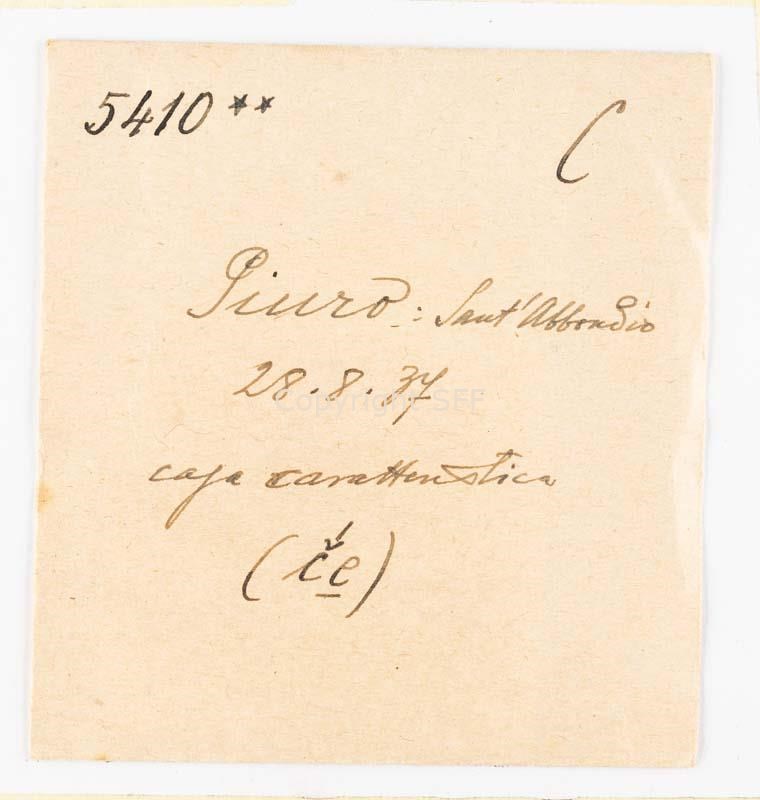 5410** C
Piuro: Sant'Abbondio
28.8.37
Copyright SEF
casa caratteristica
(čẹ́)